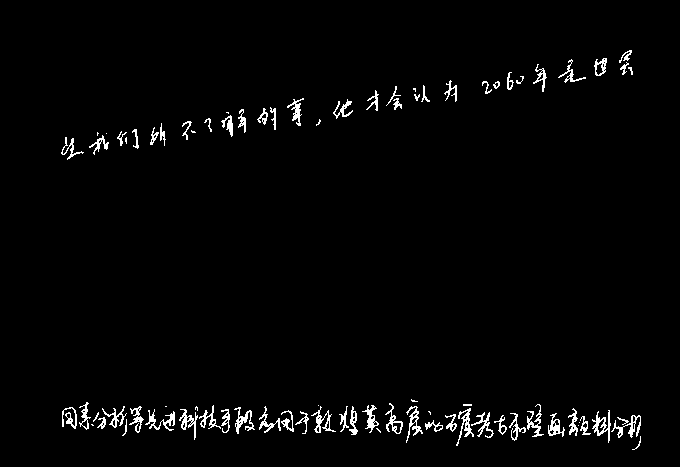 些我们所不了解的事，他才会认为2060年是世界
因素分析等先进科技手段应用于敦煌莫高窟的石窟考古和壁画颜料分析